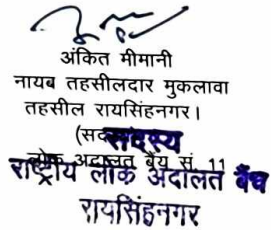 अंकित मीमानी
नायब तहसीलदार मुकलावा
तहसील रायसिंहनगर।
(सदस्य
सदस्य
लोक अदालत बैंच सं. 11
राष्ट्रीय लोक अदालत बैंच
रायसिंहनगर